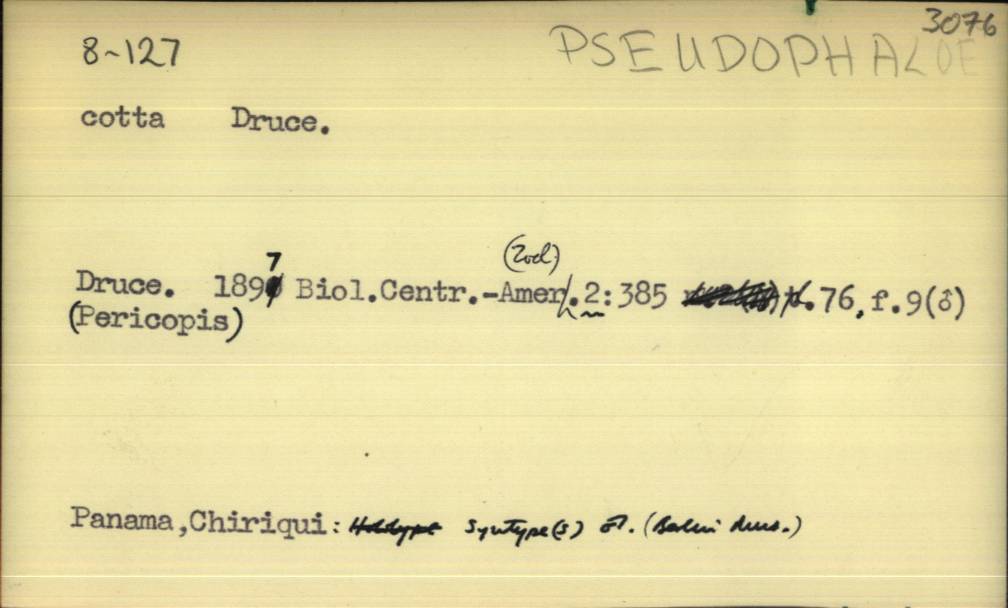 3076
8-127 PSEUDOPHALOE
cotta Druce.
(Zool)
Druce. 1897 Biol.Centr.-Amer.2:385 t.76,f.9(♂)
(Pericopis)
Panama,Chiriqui: Holotype Syntype(s) ♂. (Berlin Mus.)